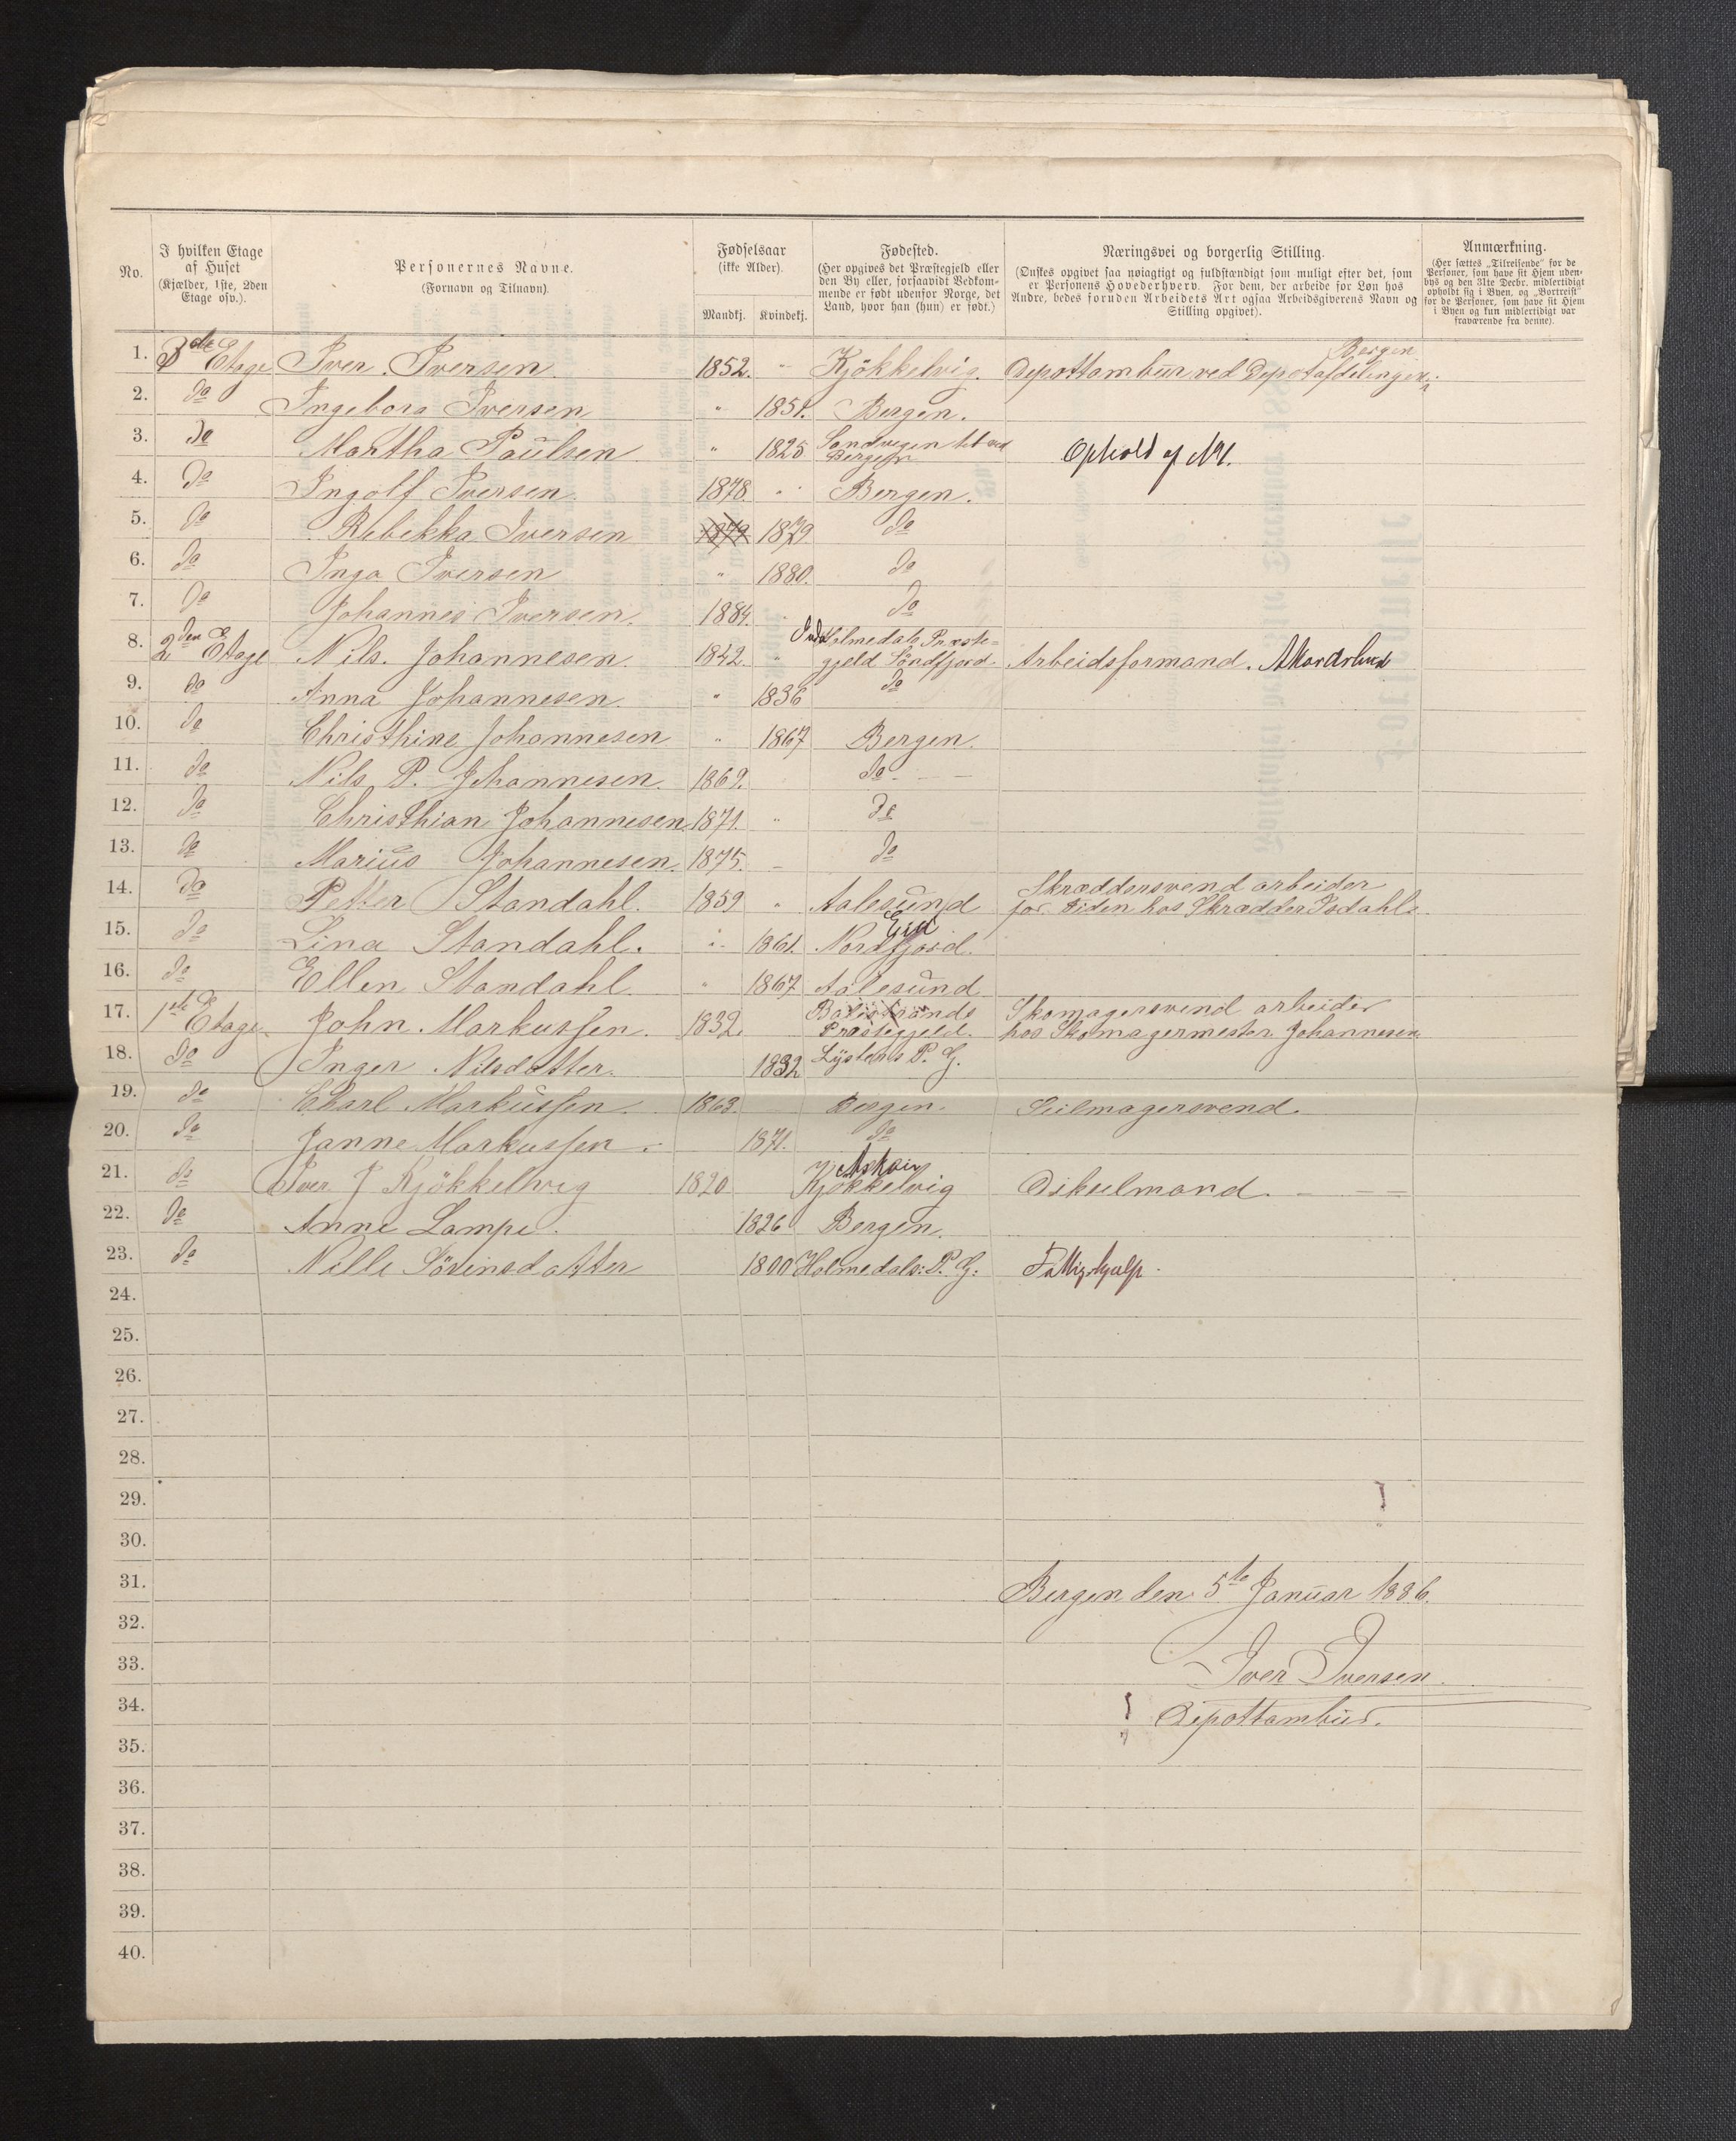 No. | I hvilken Etage af Huset (Kjælder, 1ste, 2den Etage osv.). | Personernes Navne. (Fornavn og Tilnavn). | Fødselsaar (ikke Alder). Mandkj. | Kvindekj. | Fødested. (Her opgives det Præstegjeld eller den By eller, forsaavidt Vedkommende er født udenfor Norge, det Land, hvor han (hun) er født.) | Næringsvei og borgerlig Stilling. (Ønskes opgivet saa nøiagtigt og fuldstændigt som muligt efter det, som er Personens Hovederhverv. For dem, der arbeide for Løn hos Andre, bedes foruden Arbeidets Art ogsaa Arbeidsgiverens Navn og Stilling opgivet). | Anmærkning. (Her sættes „Tilreisende" for de Personer, som have sit Hjem udenbys og den 31te Decbr. midlertidigt opholdt sig i Byen, og „Bortreist" for de Personer, som have sit Hjem i Byen og kun midlertidigt var fraværende fra denne).
1. 3de Etage Iver. Iversen. 1852. " Kjökkelvig. Depottambur ved Depotafdelingen i Bergen
2. do Ingeborg Iversen " 1851. Bergen.
3. do Martha Paulsen " 1825 Sandvigen tet ved Bergen Ophold af N1.
4. do Ingolf Iversen. 1878. " Bergen.
5. do Rebekka Iversen 1879 1879 do
6. do Inga Iversen " 1880. do
7. do Johannes Iversen. 1884. do
8. 2den Etage Nils. Johannesen. 1842. " Indr Holmedals Præstegjeld Söndfjord. Arbeidsformand.
9. do Anna Johannesen. " 1836 do
10. do Christhine Johannesen " 1867 Bergen.
11. do Nils P. Johannesen. 1869. do
12. do Christhian Johannesen 1871. " do
13. do Marius Johannesen. 1875. do
14. do Petter Standahl. 1859 " Aalesund Skræddersvend arbeider for tiden hos Skrædder Isdahl
15. do Lina Standahl. " 1861. Eid Nordfjord.
16. do Ellen Standahl. " 1867 Aalesund
17. 1ste Etage. John Markussen. 1832. Balestrands Præstegjeld. Skomagersvend arbeider hos Skomagermester Johannesen
18. do Inger Nilsdatter. 1832 Lysters P. G.
19. do Charl Markussen. 1863. Bergen. Seilmagersvend.
20. do Janne Markussen. 1871. do
21. do Iver J Kjökkelvig 1820 Askøin Kjökkelvig
22. do Anne Lampe. 1826 Bergen.
23. do Nille Sörensdatter 1800 Holmedals: P. G: Fattighjælp.
24.
25.
26.
27.
28.
29.
30.
31. Bergen den 5te Januar 1886.
32.
33. Iver Iversen.
34. Depottambur.
35.
36.
37.
38.
39.
40.